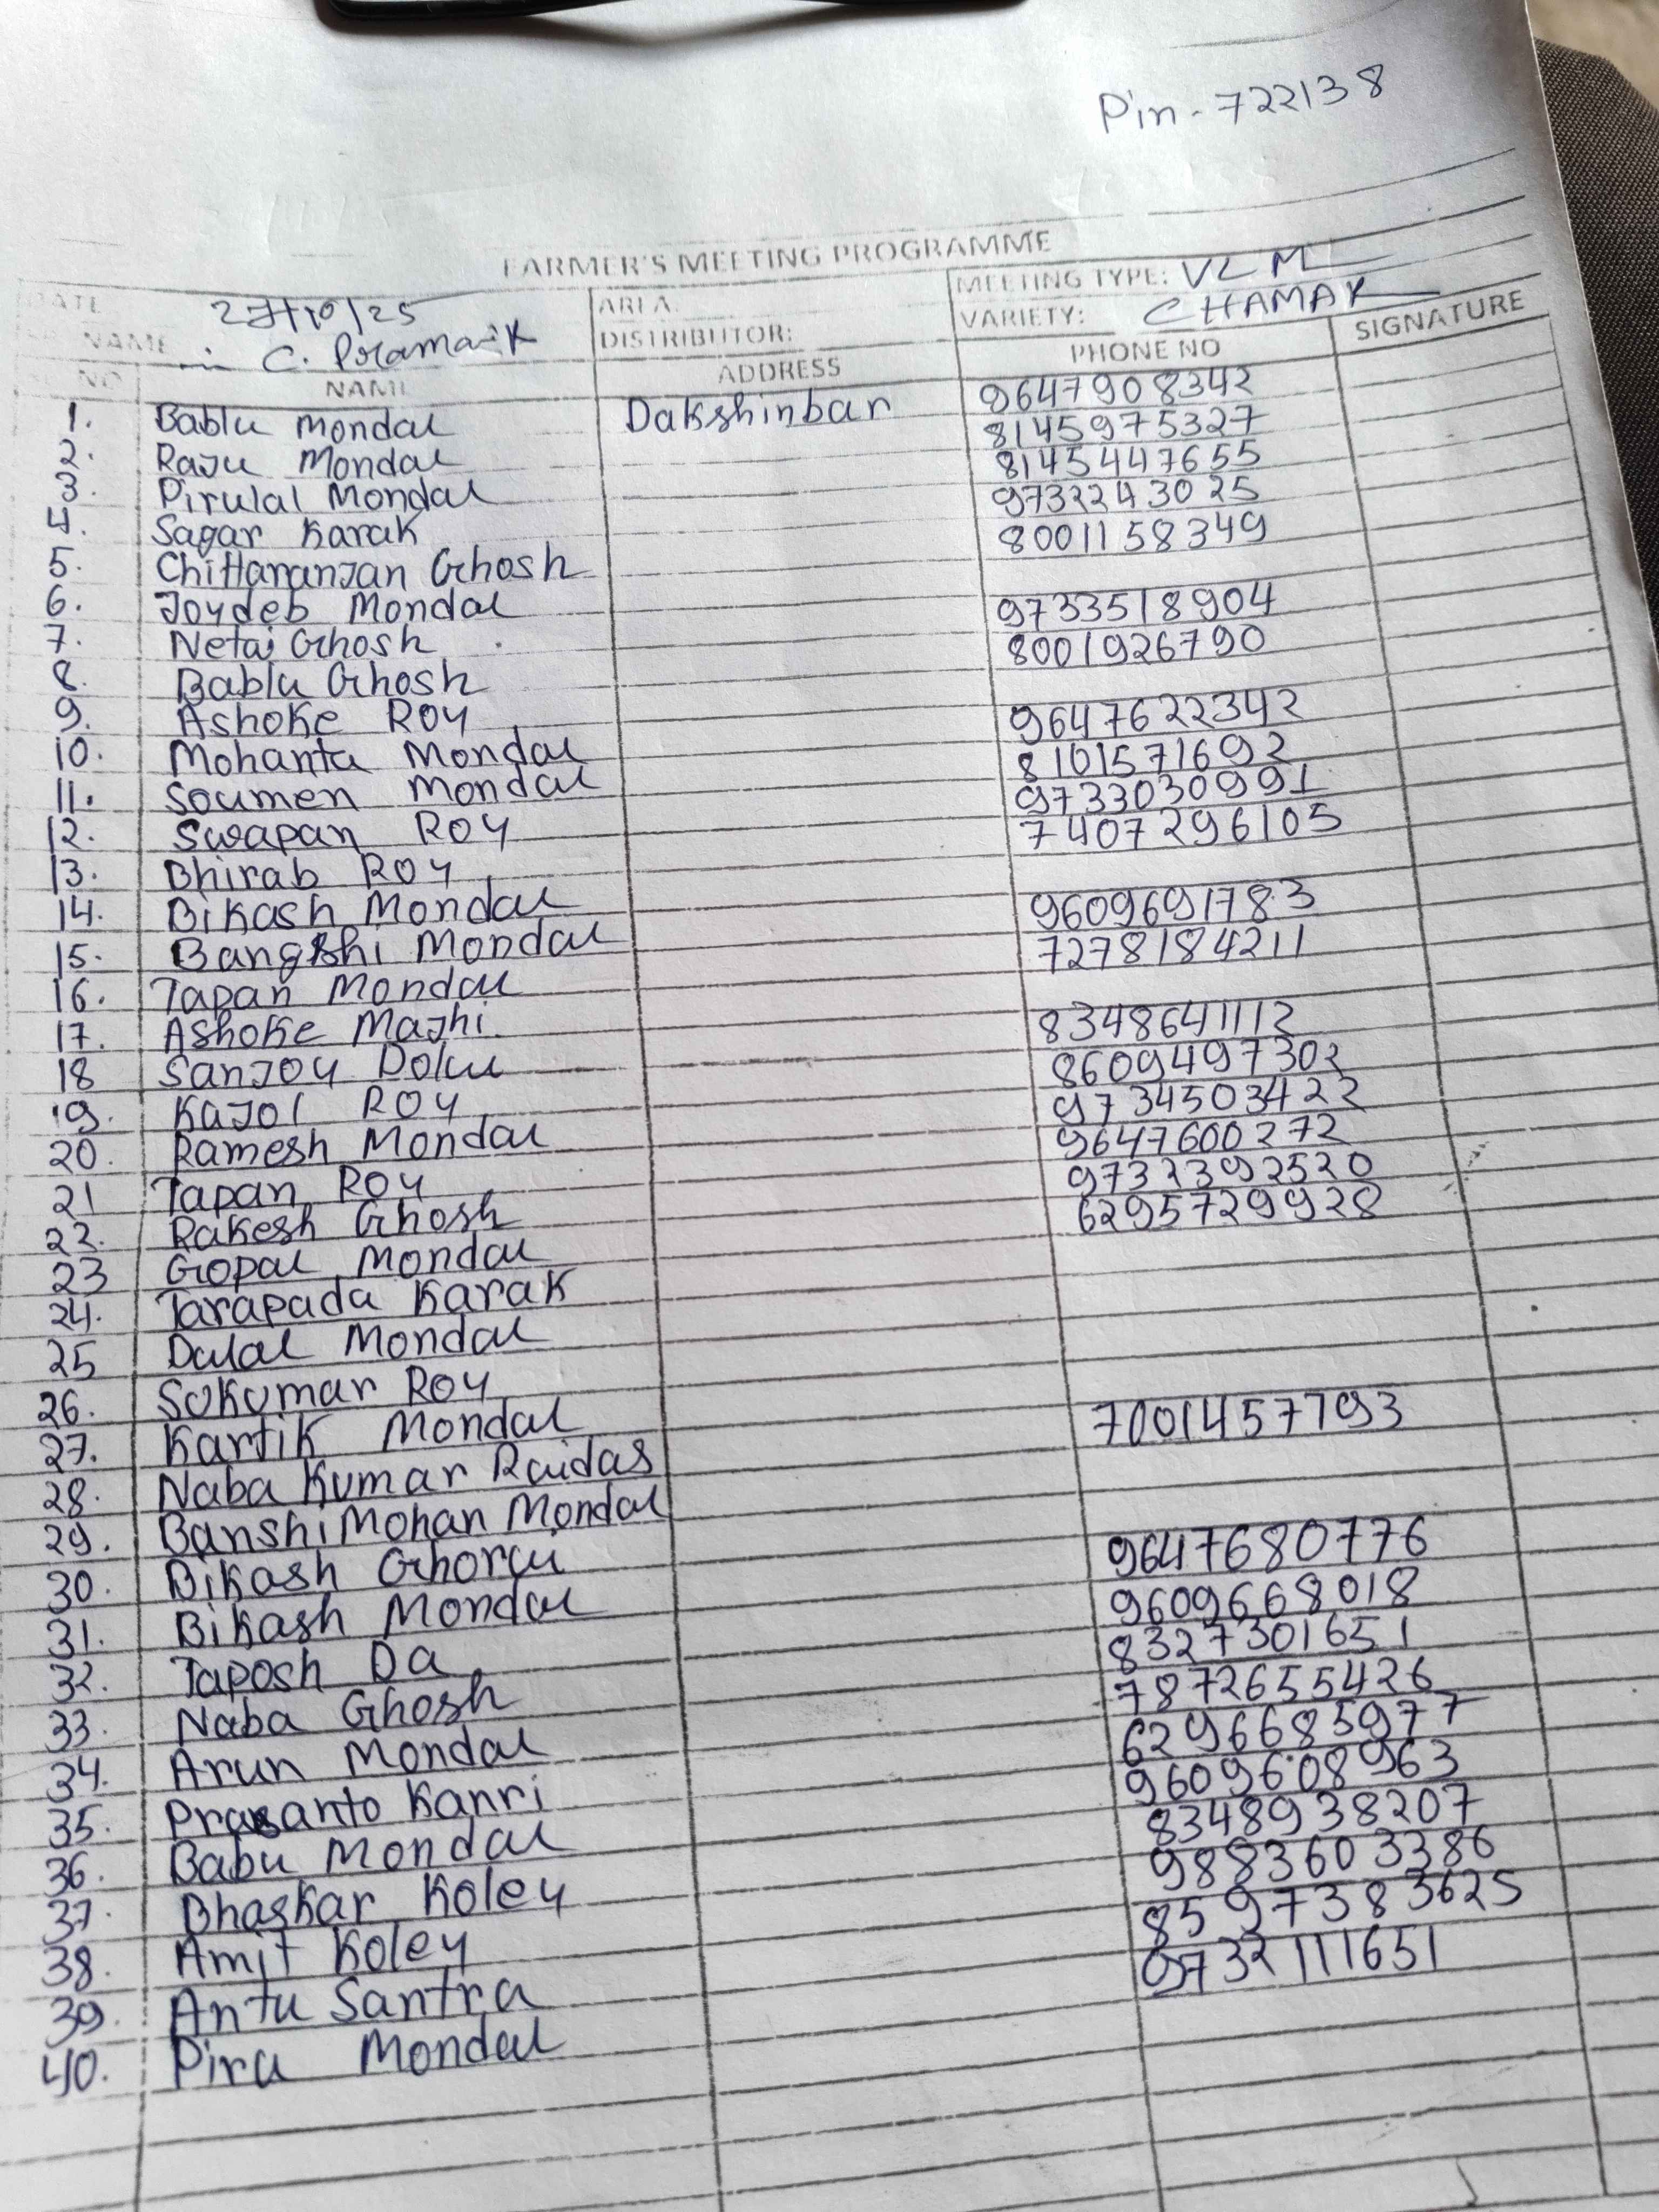 Pin - 722138
FARMER'S MEETING PROGRAMME
DATE 27/10/25 AREA: MEETING TYPE: VLM
NAME C. Pramanik DISTRIBUTOR: VARIETY: CHAMAK
NO NAME ADDRESS PHONE NO SIGNATURE
1. Bablu Mondal Dakshinbar 9647908342
2. Raju Mondal 8145975327
3. Pirulal Mondal 8145447655
4. Sagar Karak 9732243025
5. Chittaranjan Ghosh 8001158349
6. Joydeb Mondal
7. Netai Ghosh 9733518904
8. Bablu Ghosh 8001926790
9. Ashoke Roy
10. Mohanta Mondal 9647622342
11. Soumen Mondal 8101571692
12. Swapan Roy 9733030991
13. Bhirab Roy 7407296105
14. Bikash Mondal
15. Bangshi Mondal 9609691783
16. Tapan Mondal 7278184211
17. Ashoke Majhi
18 Sanjoy Dolui 8348641112
19. Kajol Roy 8609497302
20. Ramesh Mondal 9734503422
21 Tapan Roy 9647600272
22. Rakesh Ghosh 9732392520
23 Gopal Mondal 6295729928
24. Tarapada Karak
25 Dulal Mondal
26. Sukumar Roy
27. Kartik Mondal
28. Naba Kumar Ruidas 7001457793
29. Banshi Mohan Mondal
30. Bikash Ghorui
31. Bikash Mondal 9647680776
32. Taposh Da 9609668018
33. Naba Ghosh 8327301651
34. Arun Mondal 7872655426
35. Prasanto Kanri 6296685977
36. Babu Mondal 9609608963
37. Bhaskar Koley 8348938207
38. Amit Koley 9883603386
39. Antu Santra 8597383625
40. Piru Mondal 9732111651